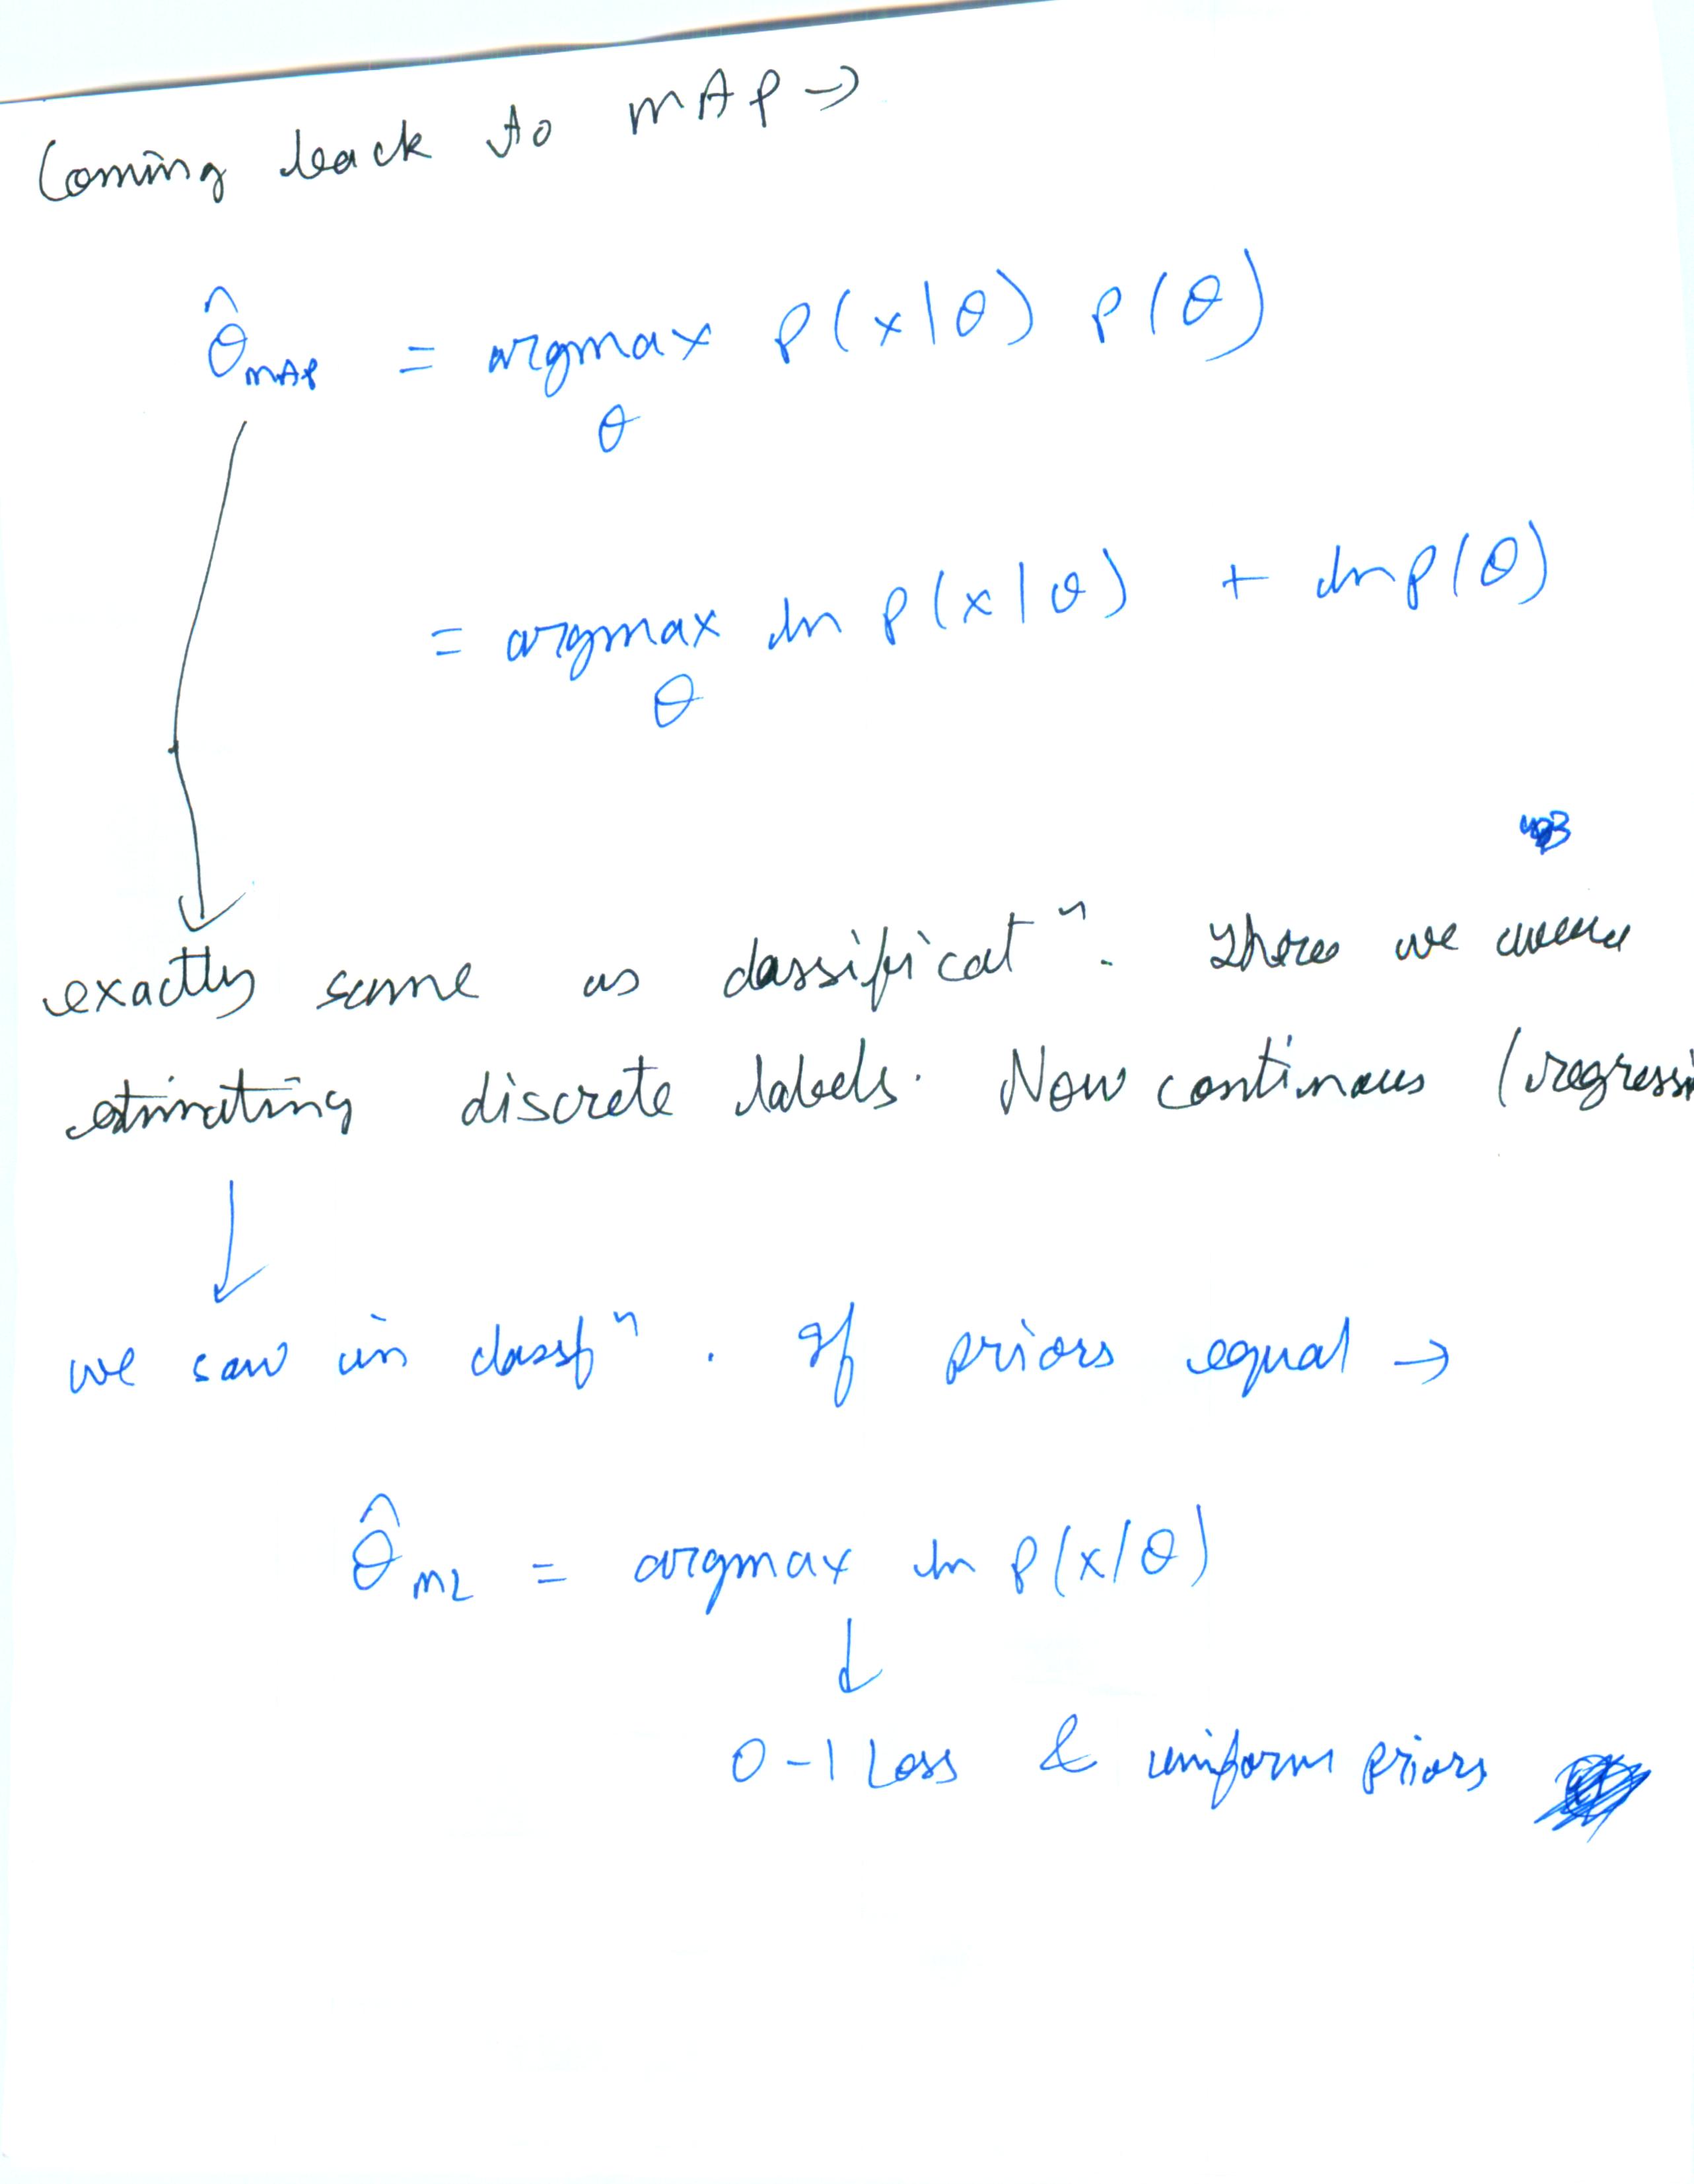 Coming back to MAP →
θ̂_MAP = argmax P(x|θ) P(θ)
θ
= argmax ln P(x|θ) + ln P(θ)
θ
exactly same as classificatⁿ. There we were
estimating discrete labels. Now continous (regressi
we saw in classfⁿ. If priors equal →
θ̂_ML = argmax ln P(x/θ)
↓
0-1 Loss & uniform priors